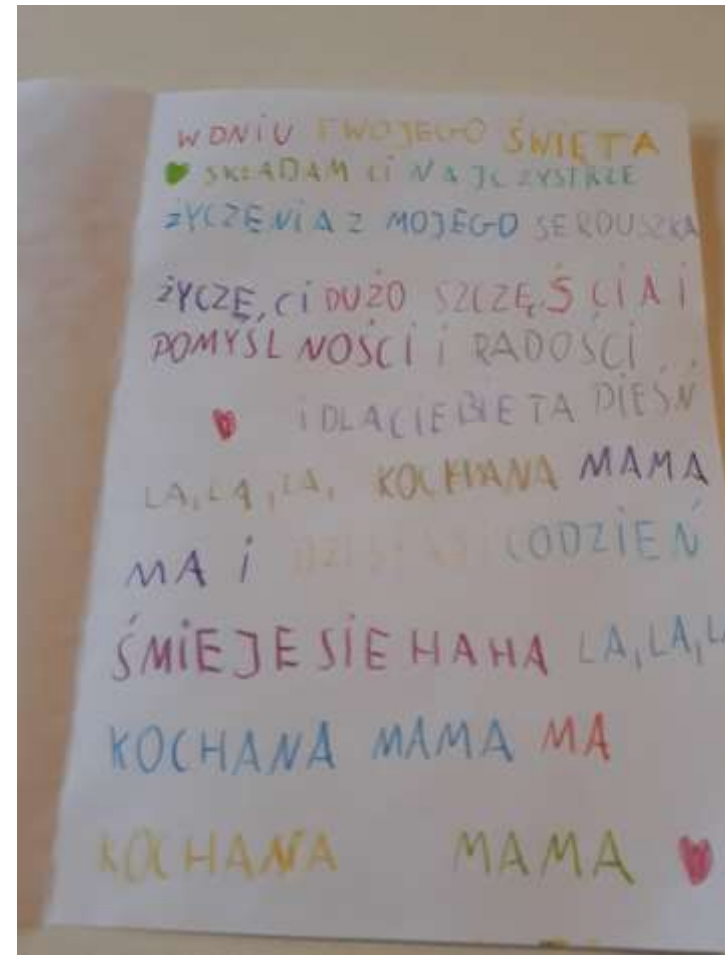 W DNIU TWOJEGO ŚWIĘTA
SKŁADAM CI NAJCZYSTRZE
ŻYCZENIA Z MOJEGO SERDUSZKA
ŻYCZĘ, CI DUŻO SZCZĘŚCIA I
POMYŚLNOŚCI I RADOŚCI
I DLA CIEBIE TA PIEŚŃ
LA, LA, LA, KOCHANA MAMA
MA I CODZIEŃ
ŚMIEJE SIE HAHA LA, LA, LA
KOCHANA MAMA MA
KOCHANA MAMA